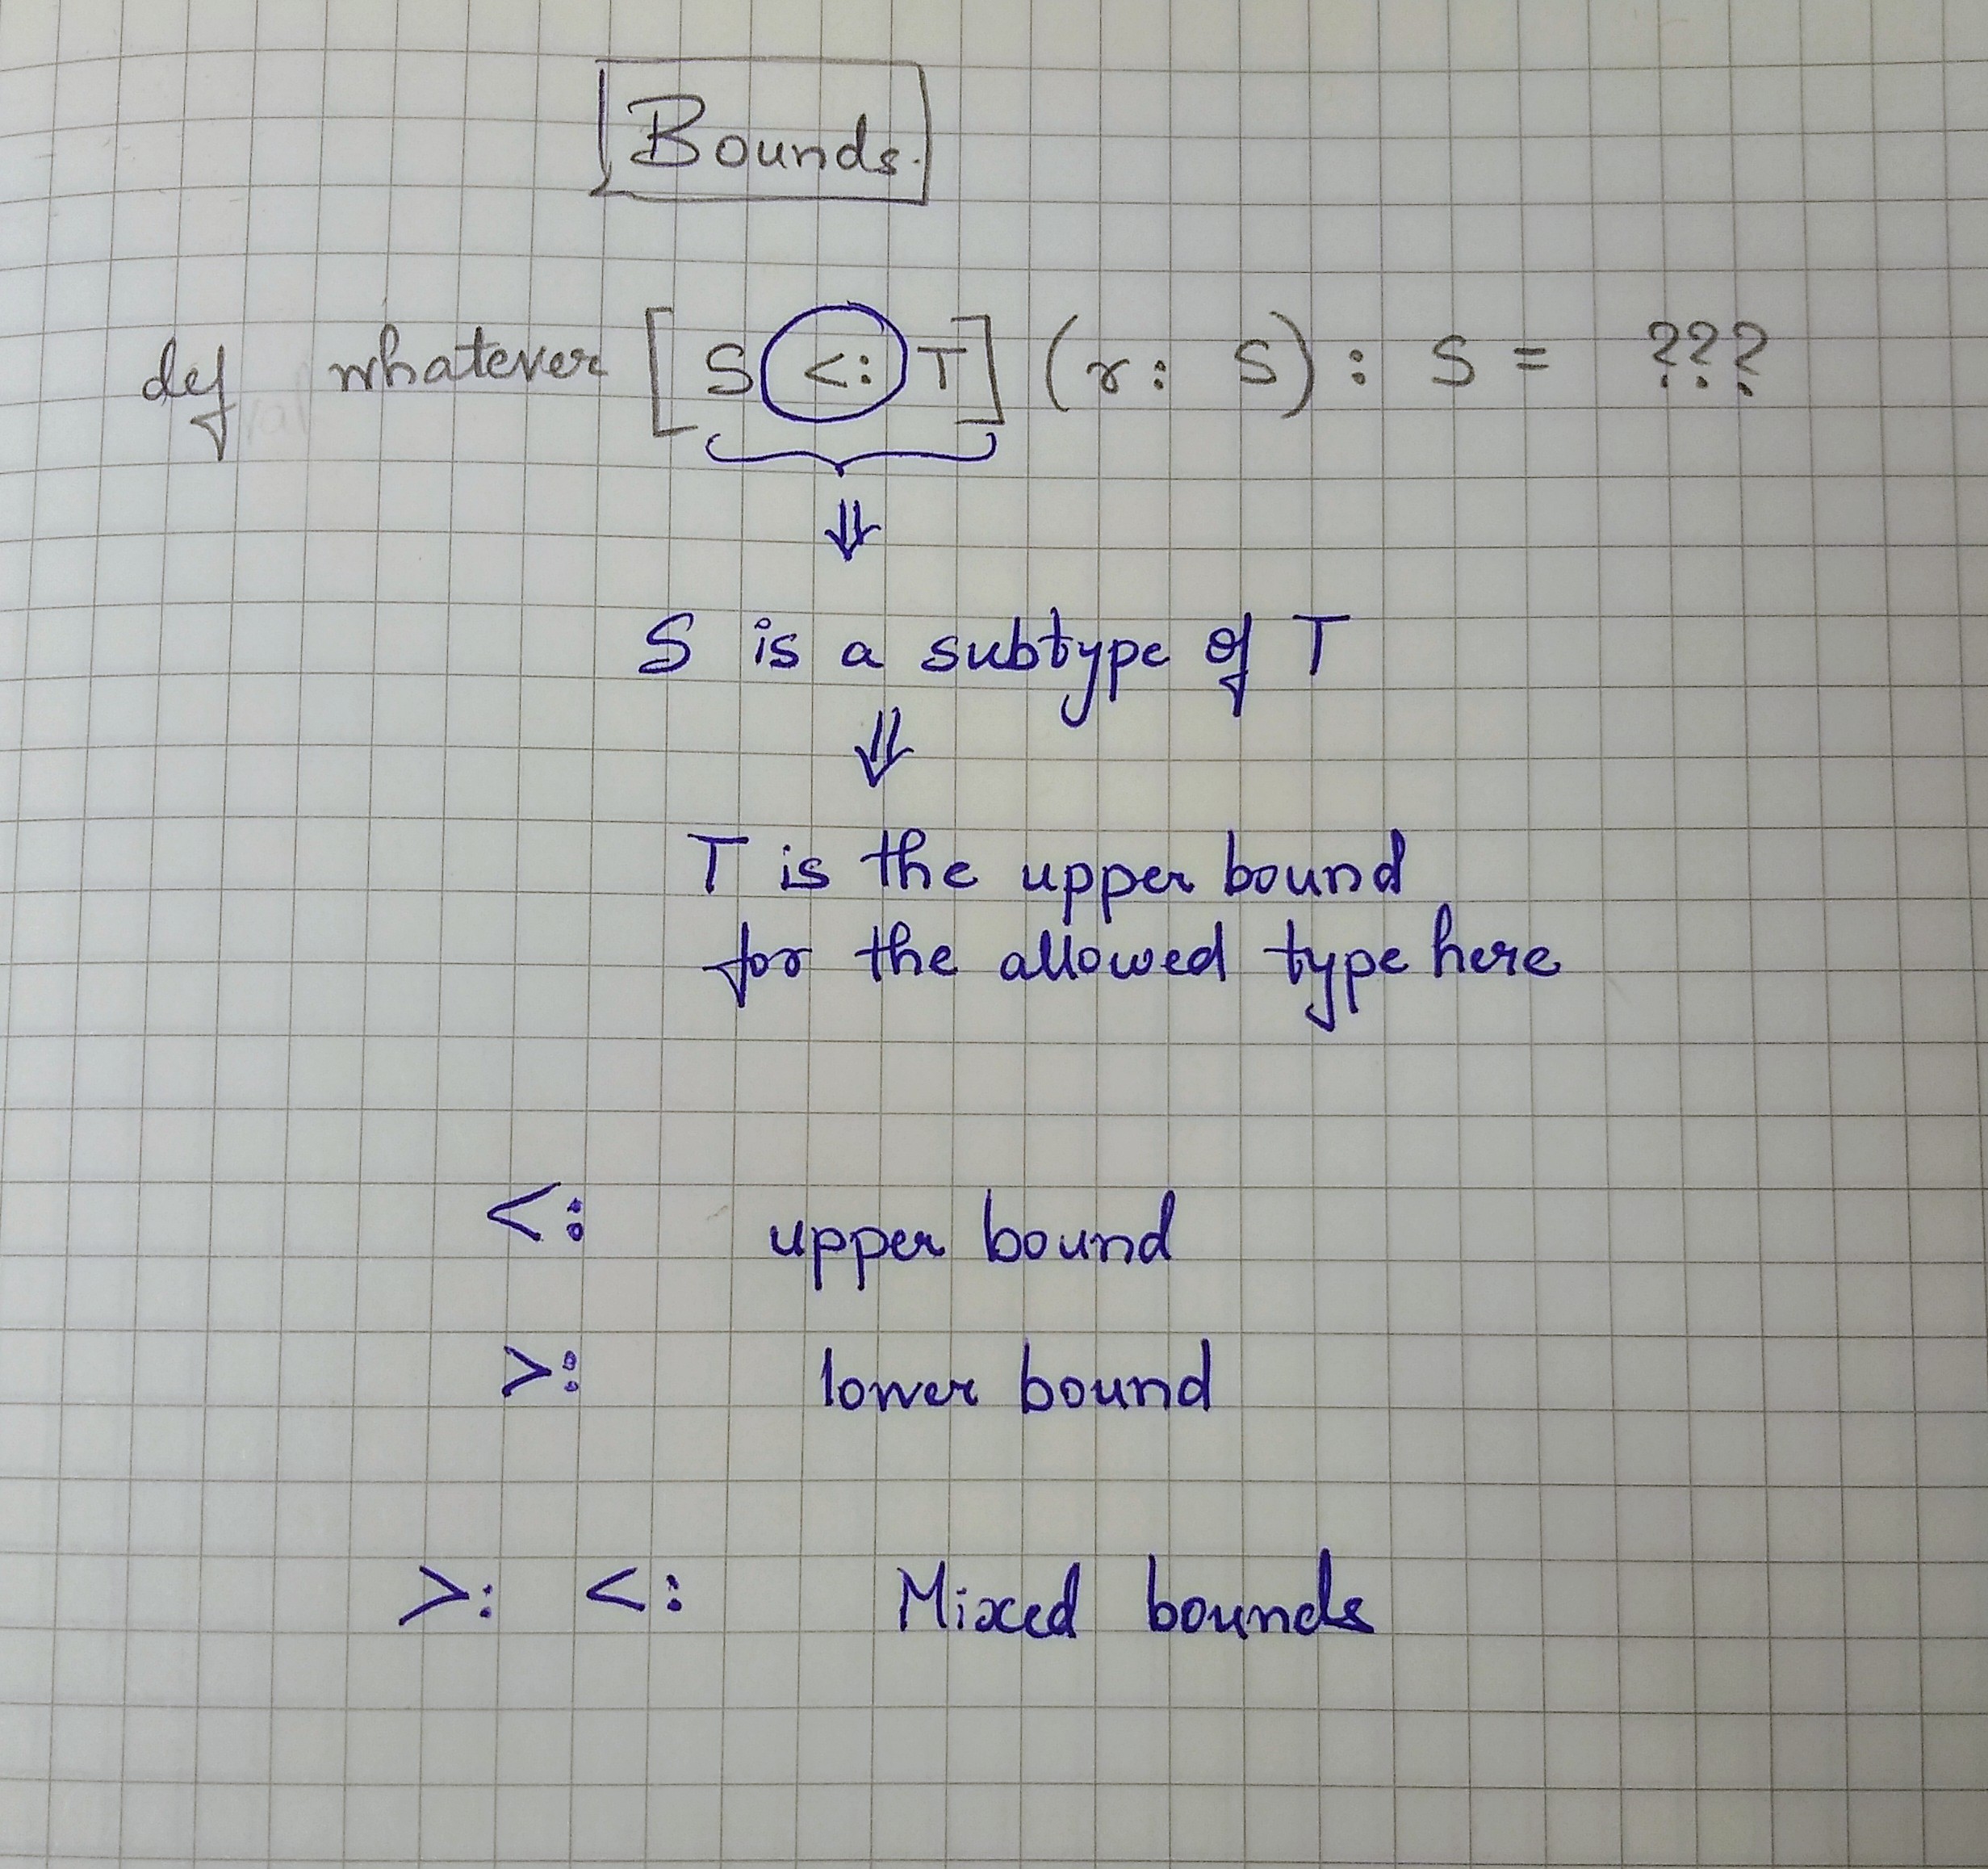 Bounds.
def whatever [S <: T] (r: S): S = ???
⇓
S is a subtype of T
⇓
T is the upper bound
for the allowed type here
<: upper bound
>: lower bound
>: <: Mixed bounds